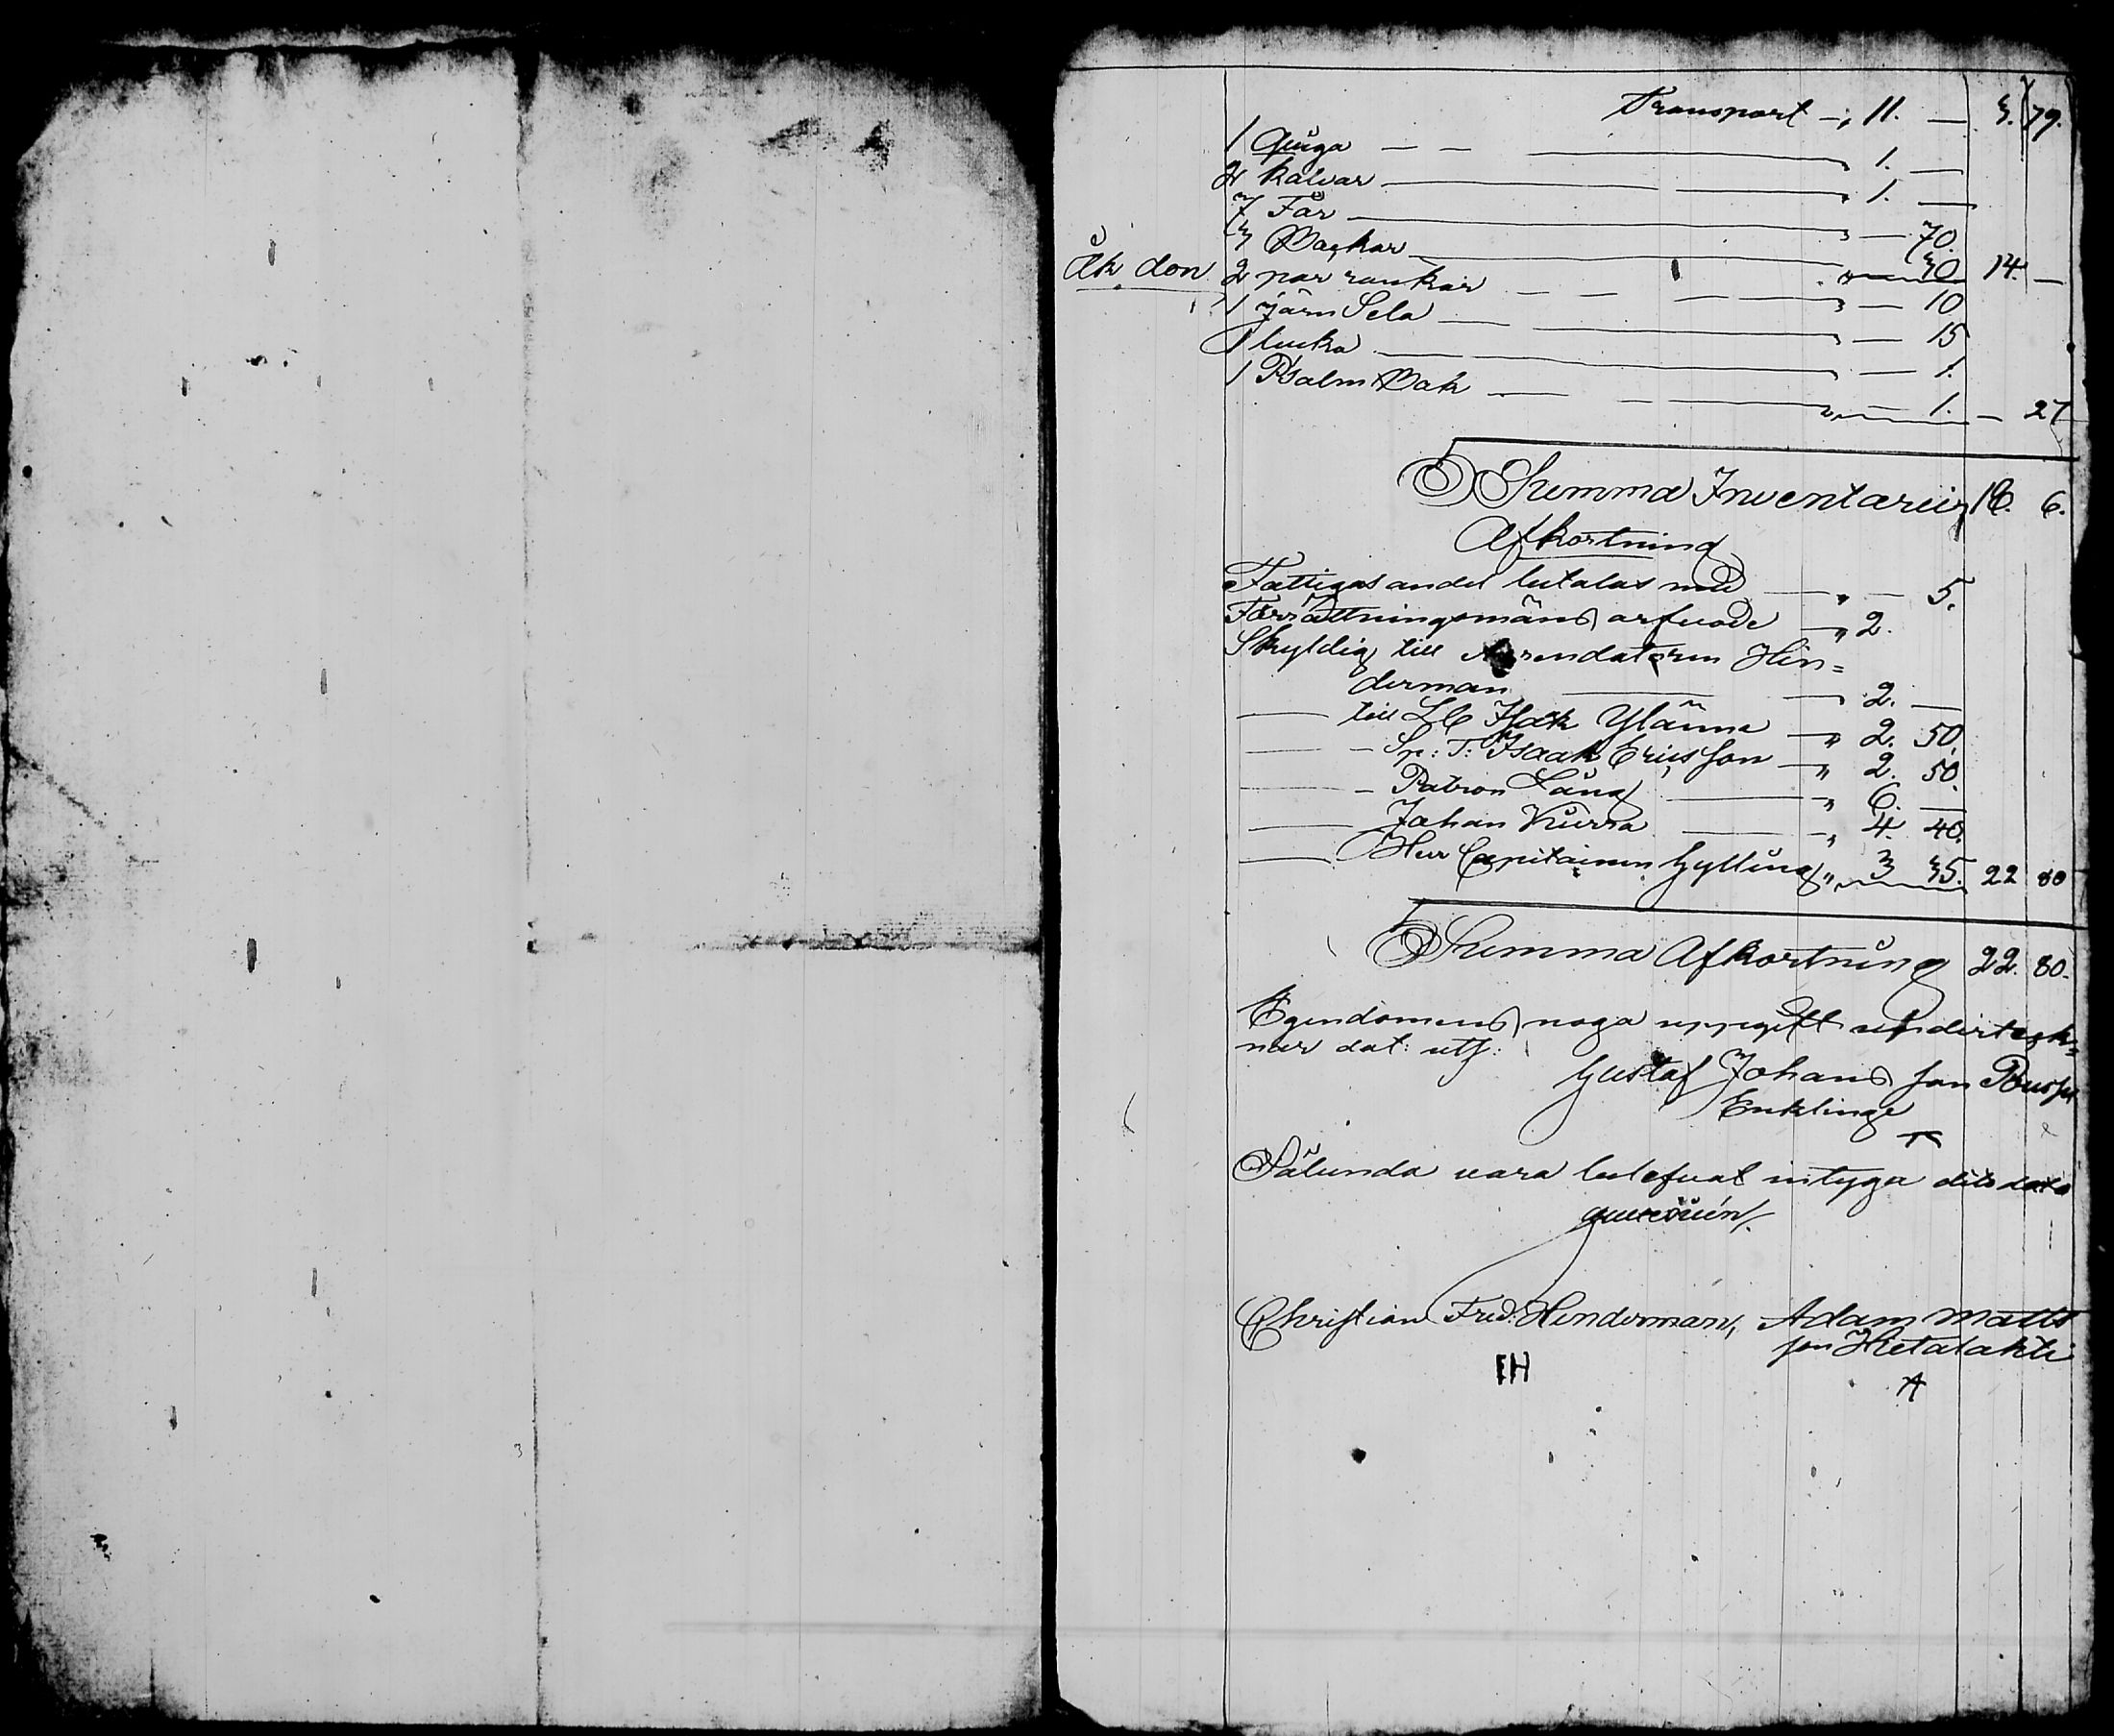 Transport — „ 11. — 3. 79.
1 Quiga — — „ 1. —
2 kalvar — „ 1. —
7 Får — „ — 70.
3 Baggar — „ — 30 14. —
Åk don 2 par rankar — — „ — 10
1 järn Sela — „ — 15
1 luka — „ — 1.
1 Psalm Bok — „ — 1. — 27
Summa Inventarium 18. 6.
Afkortning
Fattigas andel betalas med — „ — 5.
Förrättningsmäns arfvode — „ 2.
Skyldig till Arrendatoren Hin=
derman — „ 2. —
— till Isak Ylänne — „ 2. 50.
— – Sp: T: Isaak Ericsson — „ 2. 50.
— – Patron Lång — „ 6. —
— Johan Kurra — „ 4. 40.
— Herr Capitainen Gylling „ 3 35. 22 80
Summa Afkortning 22. 80.
Egendomens noga uppgift underteck=
nar dat: utß:
Gustaf Johans son
Enklinge
Sålunda vara befval intyga dito dato
Christian Fred: Hinderman, Adam Matts
son Hietalahti
IH A